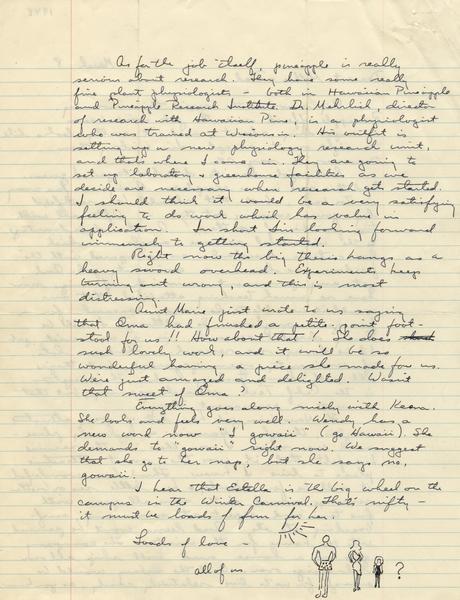 As for the job itself, pineapple is really
serious about research. They have some really
fine plant physiologists - both in Hawaiian Pineapple
and Pineapple Research Institute. Dr. Mehrlich, director
of research with Hawaiian Pine, is a physiologist
who was trained at Wisconsin. His outfit is
setting up a new physiology research unit,
and that's where I come in. They are going to
set up laboratory & greenhouse facilities as we
decide are necessary when research gets started.
I should think it would be a very satisfying
feeling to do work which has value in
application. In short I'm looking forward
immensely to getting started.
Right now the big thesis hangs as a
heavy sword overhead. Experiments keep
turning out wrong, and this is most
distressing.
Aunt Marie, just wrote to us saying
that Oma had finished a petite point foot-
stool for us!! How about that! She does
such lovely work, and it will be so
wonderful having a piece she made for us.
We're just amazed and delighted. Wasn't
that sweet of Oma?
Everything goes along nicely with
She looks and feels very well. Wendy has a
new word now "I gowaii" (go Hawaii). She
demands to "gowaii" right now. We suggest
that she go to her nap, but she says no,
gowaii.
I hear that Estella is the big wheel on the
campus in the Winter Carnival. That's nifty -
it must be loads of fun for her.
Loads of love -
all of us
?